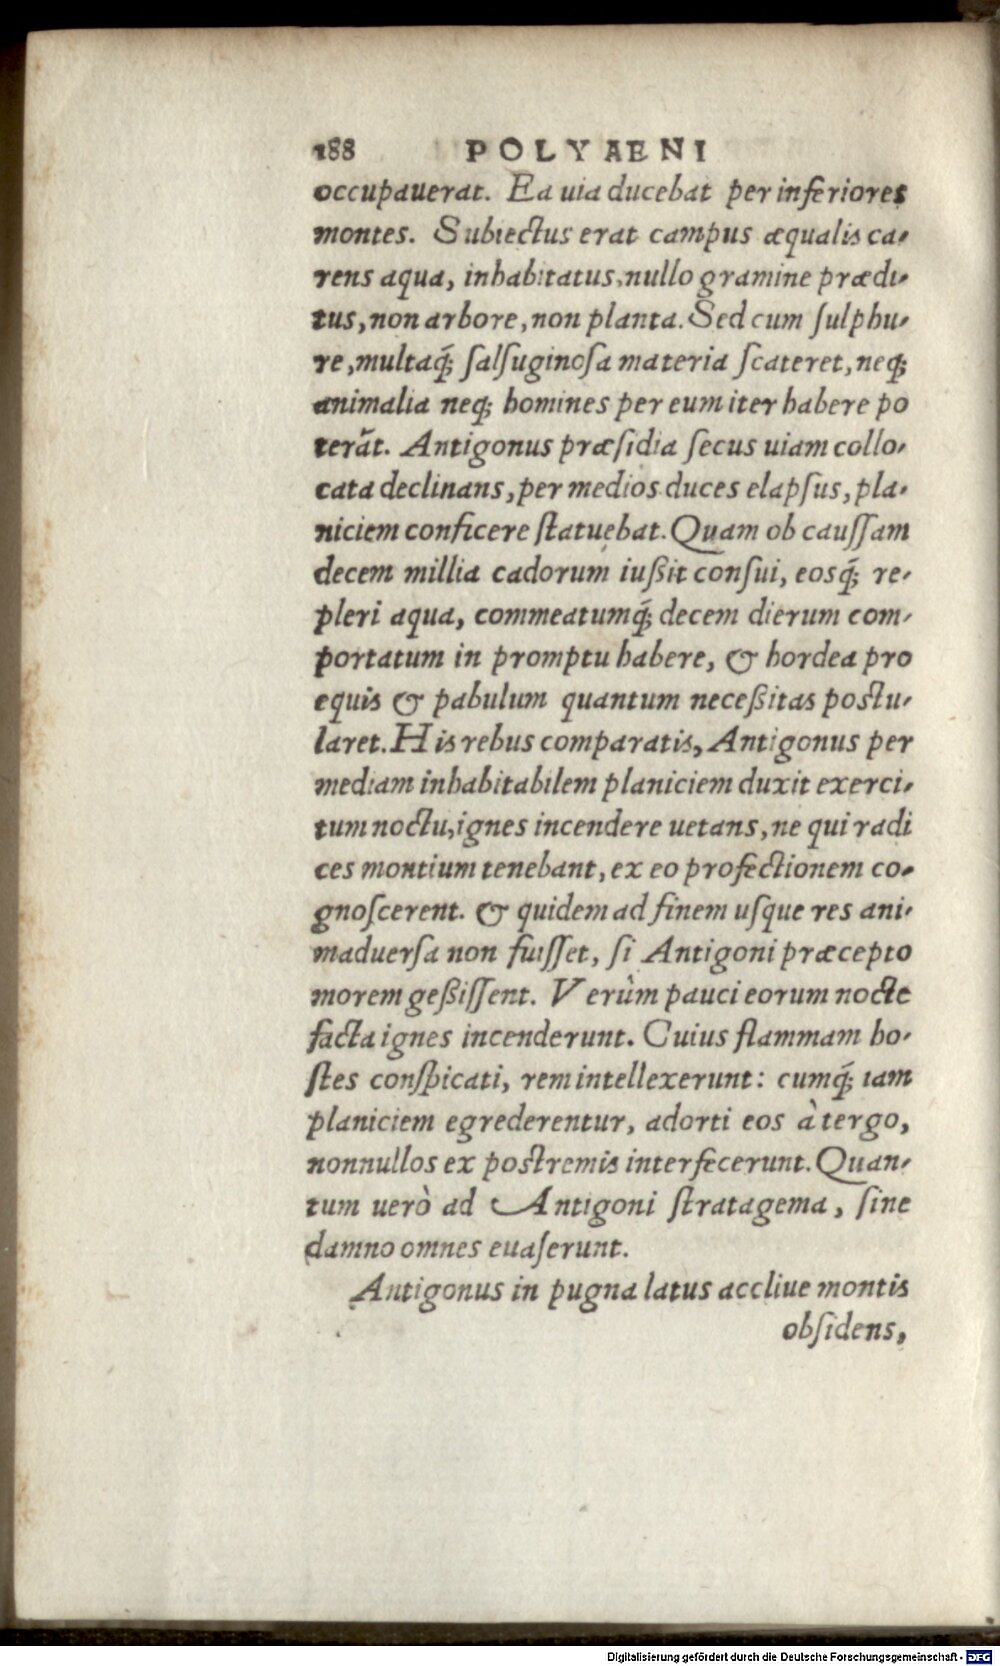 188 POLYAENI
occupauerat. Ea uia ducebat per inferiores
montes. Subiectus erat campus æqualis ca-
rens aqua, inhabitatus, nullo gramine prædi-
tus, non arbore, non planta. Sed cum ſulphu-
re, multaq́; ſalſuginoſa materia ſcateret, neq;
animalia neq; homines per eum iter habere po
terāt. Antigonus præſidia ſecus uiam collo-
cata declinans, per medios duces elapſus, pla-
niciem conficere ſtatuebat. Quam ob cauſſam
decem millia cadorum iußit conſui, eosq́; re-
pleri aqua, commeatumq́; decem dierum com-
portatum in promptu habere, & hordea pro
equis & pabulum quantum neceßitas poſtu-
laret. His rebus comparatis, Antigonus per
mediam inhabitabilem planiciem duxit exerci-
tum noctu, ignes incendere uetans, ne qui radi
ces montium tenebant, ex eo profectionem co-
gnoſcerent. & quidem ad finem uſque res ani-
maduerſa non fuiſſet, ſi Antigoni præcepto
morem geßiſſent. Verùm pauci eorum nocte
facta ignes incenderunt. Cuius flammam ho-
ſtes conſpicati, rem intellexerunt: cumq́; iam
planiciem egrederentur, adorti eos à tergo,
nonnullos ex poſtremis interfecerunt. Quan-
tum uerò ad Antigoni ſtratagema, ſine
damno omnes euaſerunt.
Antigonus in pugna latus accliue montis
obſidens,
Digitalisierung gefördert durch die Deutsche Forschungsgemeinschaft - DFG